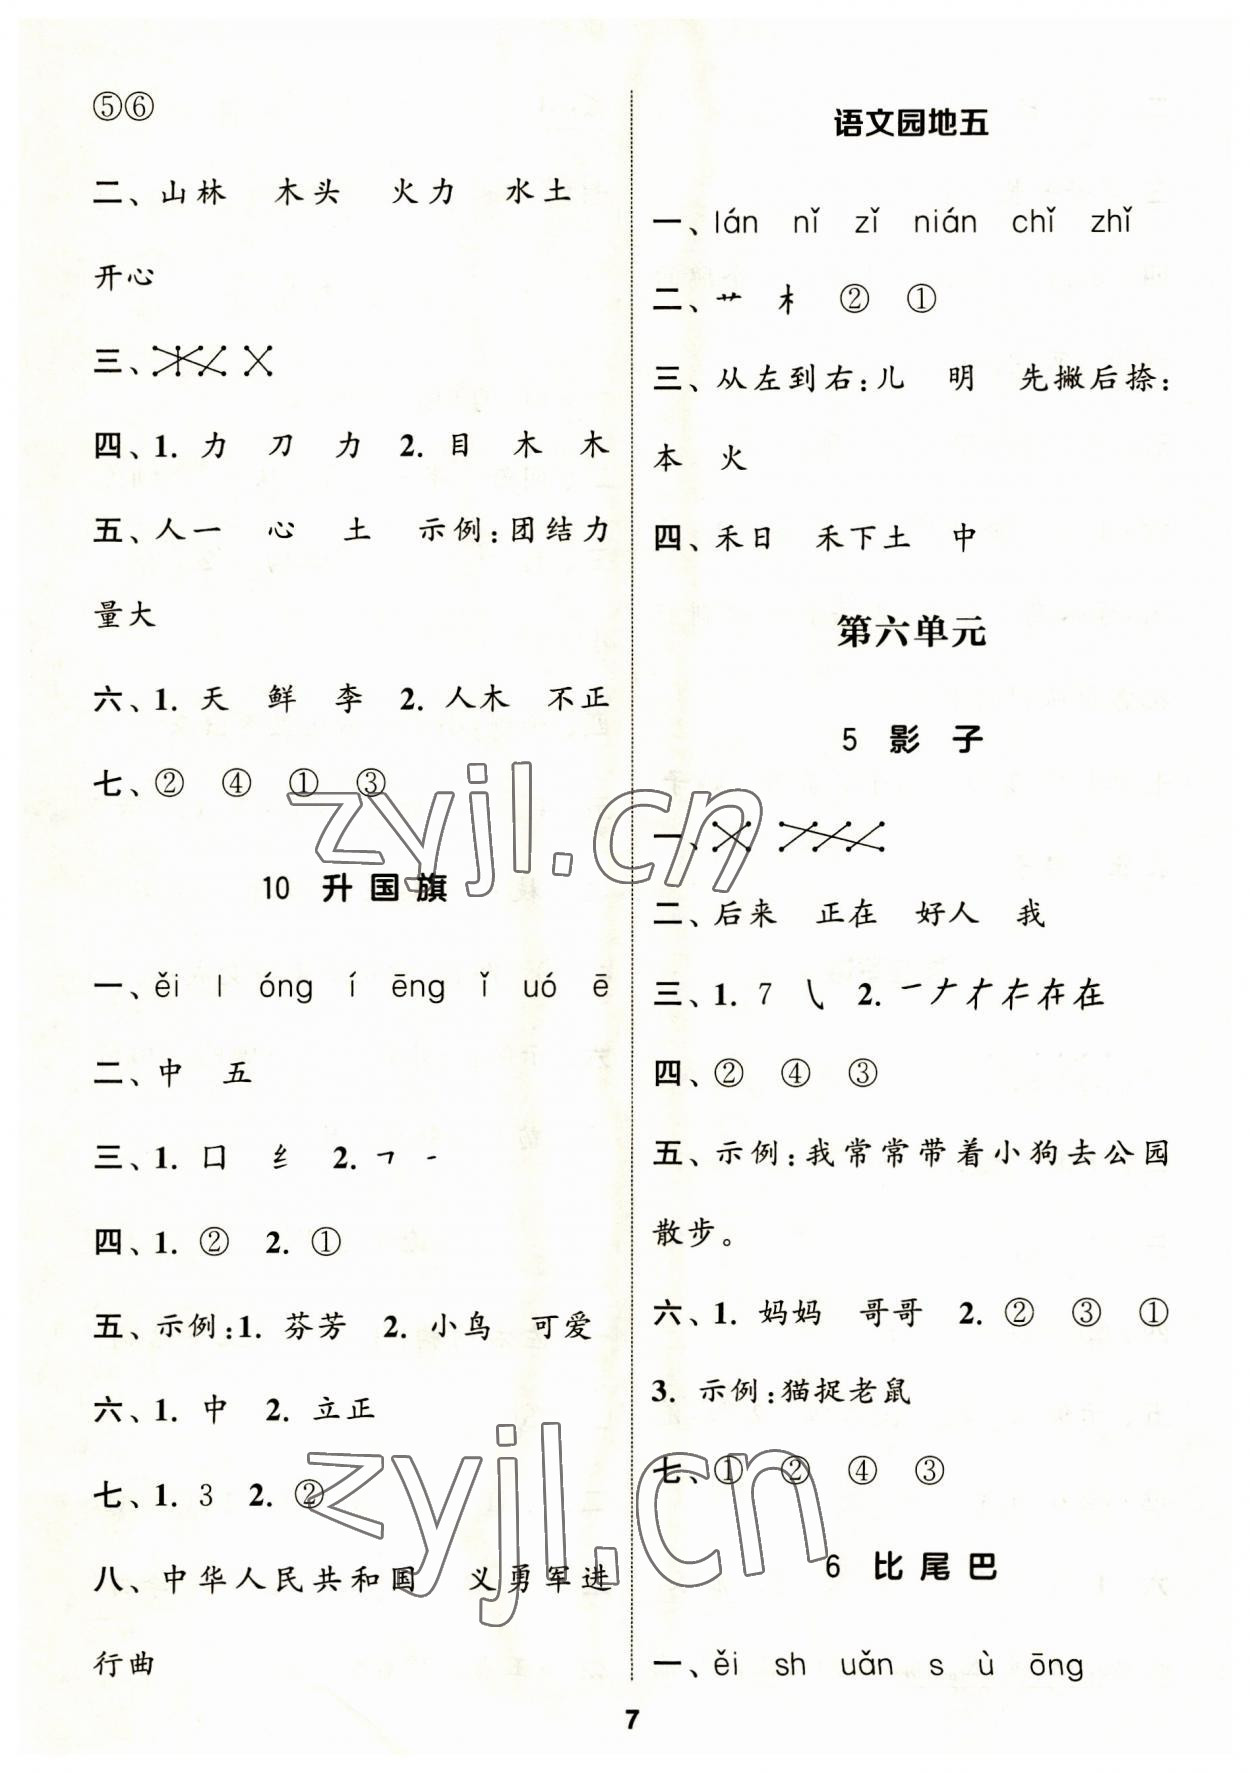 ⑤⑥
二、山林 木头 火力 水土
开心
三、
四、1. 力 刀 力 2. 目 木 木
五、人一 心 土 示例:团结力
量大
六、1. 天 鲜 李 2. 人木 不正
七、② ④ ① ③
10 升国旗
一、ěi l óng í ēng ǐ uó ē
二、中 五
三、1. 口 纟 2. ㇕ -
四、1. ② 2. ①
五、示例:1. 芬芳 2. 小鸟 可爱
六、1. 中 2. 立正
七、1. 3 2. ②
八、中华人民共和国 义勇军进
行曲
语文园地五
一、lán nǐ zǐ nián chǐ zhǐ
二、艹 木 ② ①
三、从左到右:儿 明 先撇后捺:
本 火
四、禾日 禾下土 中
第六单元
5 影子
一、
二、后来 正在 好人 我
三、1. 7 ㇏ 2. 在在
四、② ④ ③
五、示例:我常常带着小狗去公园
散步。
六、1. 妈妈 哥哥 2. ② ③ ①
3. 示例:猫捉老鼠
七、① ② ④ ③
6 比尾巴
一、ěi sh uǎn s ù ōng
7
zyjl.cn
zyjl.cn